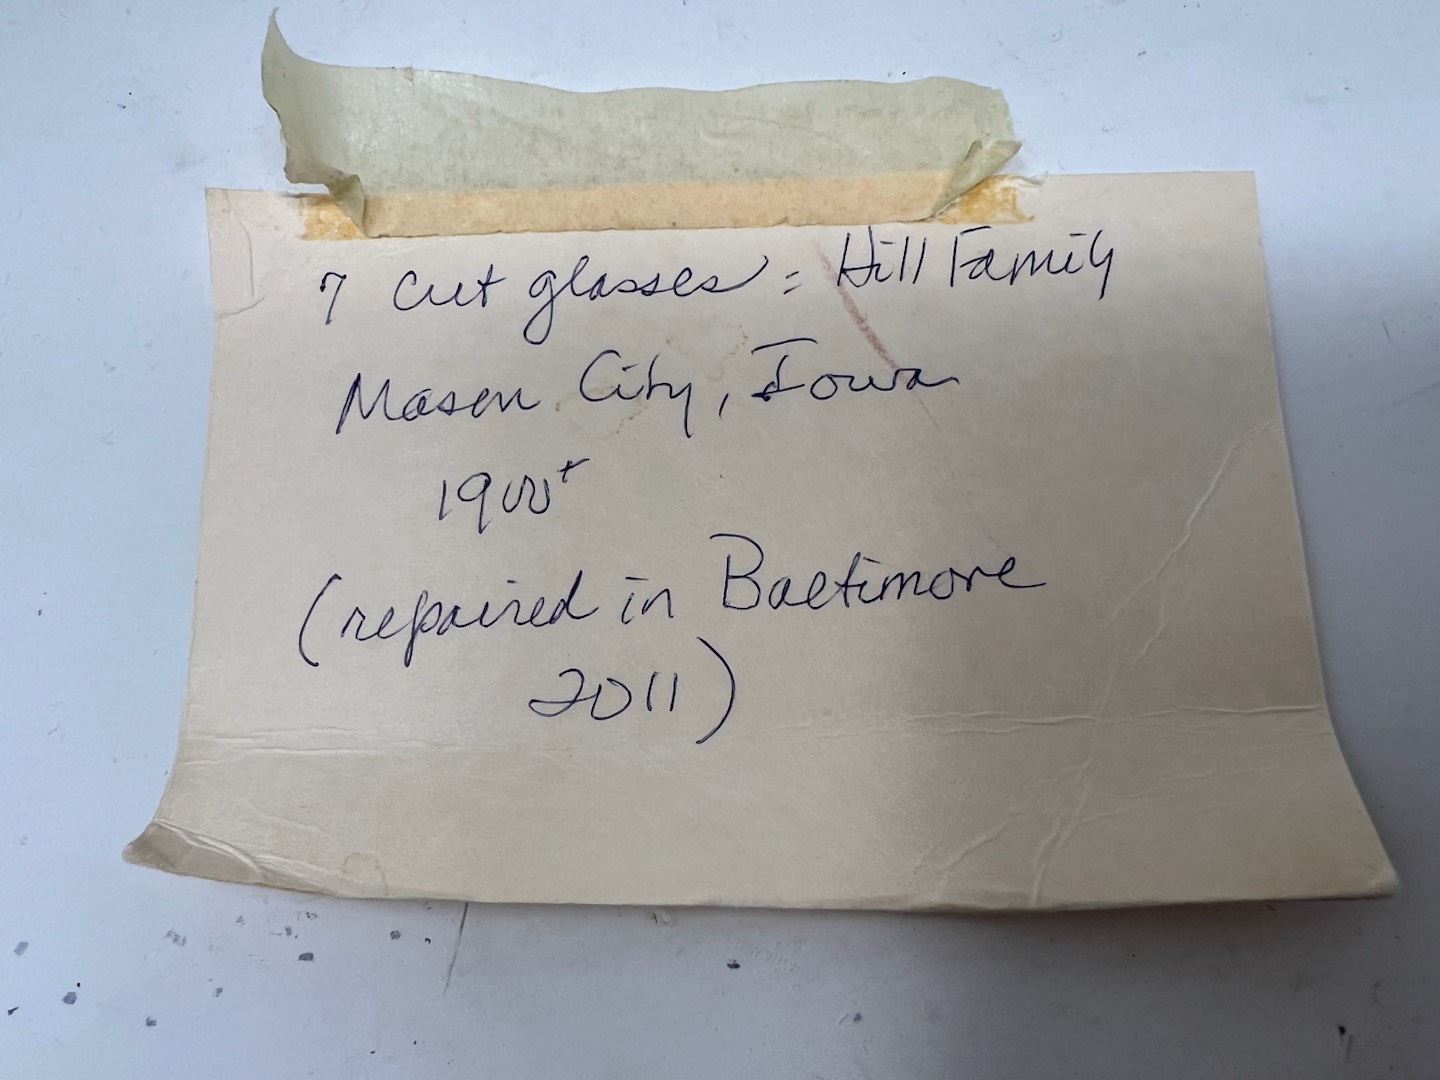 7 cut glasses = Hill Family
Mason City, Iowa
1900+
(repaired in Baltimore
2011)